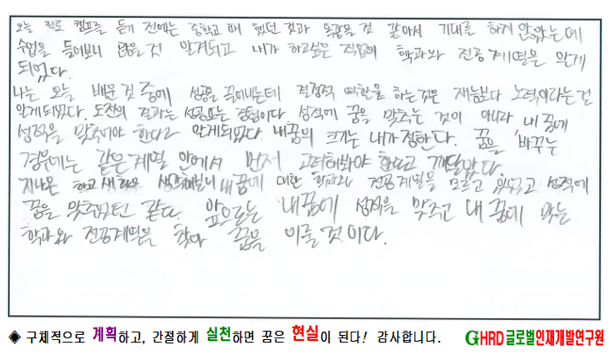 오늘 진로 캠프를 듣기 전에는 중학교 때 했던 것과 똑같을 것 같아서 기대를 하지 않았는데
수업을 들어보니 많을 것 알게되고 내가 하고싶은 직업의 학과와 전공계열을 알게
되었다.
나는 오늘 배운것 중에 성공을 끌어내는데 결정적 역할을 하는것은 재능보다 노력이라는걸
알게되었다. 도전의 결과는 성공또는 성공이다. 성적에 꿈을 맞추는 것이 아니라 내 꿈에
성적을 맞추어야 한다고 알게되었다. 내꿈의 크기는 내가정한다. 꿈을 바꾸는
경우에는 같은계열 안에서 먼저 고려해봐야 한다고 깨달았다.
지나온 하고 생각해보니 내꿈에 대한 학과와 전공계열을 모르고 있었고 성적에
꿈을 맞췄던 같다. 앞으로는 내꿈에 성적을 맞추고 내 꿈에 맞는
학과와 전공계열을 찾아 꿈을 이룰 것이다.
◈ 구체적으로 계획하고, 간절하게 실천하면 꿈은 현실이 된다! 감사합니다. GHRD 글로벌인재개발연구원